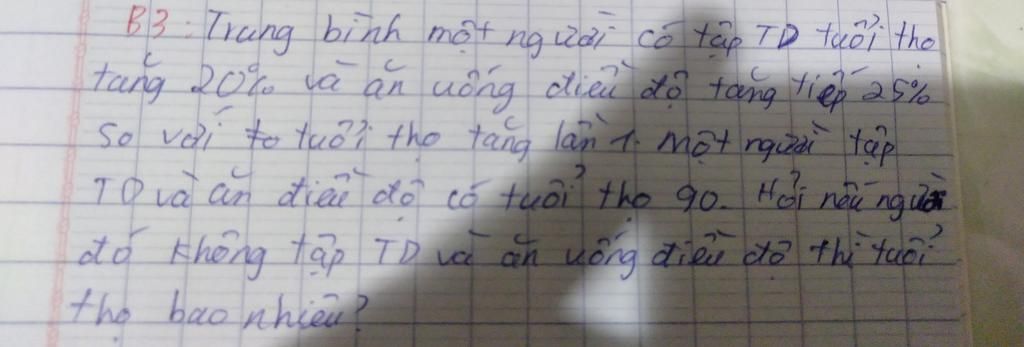 B3: Trung bình một người có tập TD tuổi thọ
tăng 20% và ăn uống điều độ tăng tiếp 25%
so với to tuổi thọ tăng lần 1. Một người tập
TD và ăn điều độ có tuổi thọ 90. Hỏi nếu người
đó không tập TD và ăn uống điều độ thì tuổi
thọ bao nhiêu?